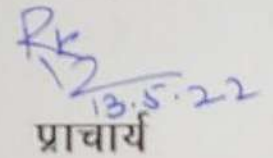 13.5.22
प्राचार्य